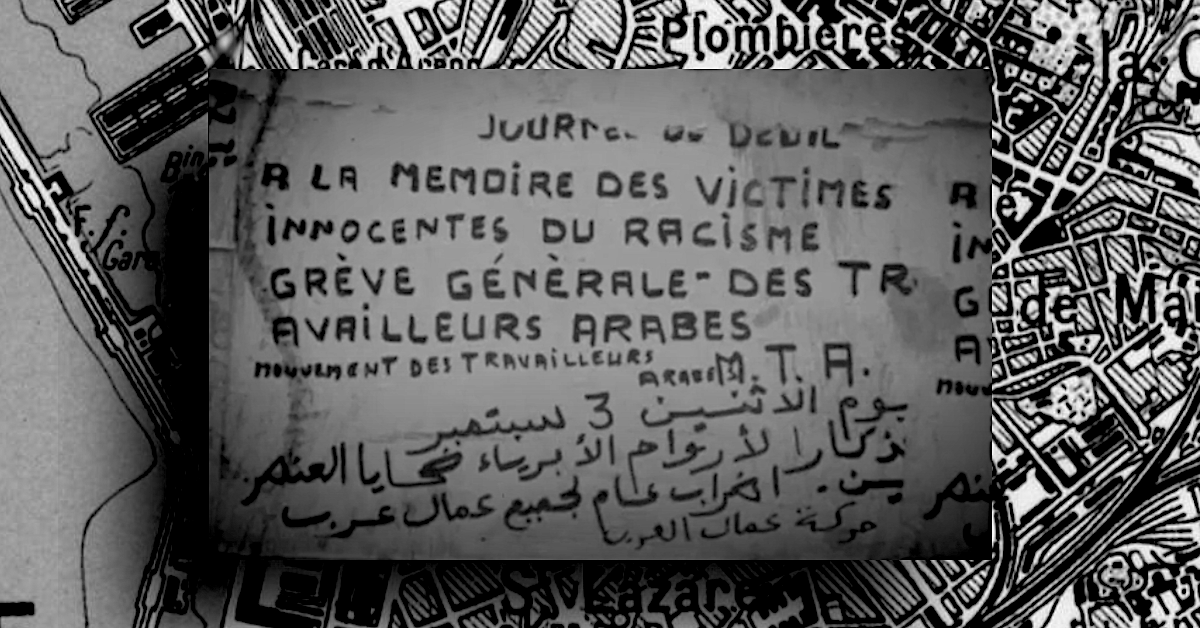 Plombières
la
JOURNEE DE DEUIL
A LA MEMOIRE DES VICTIMES
INNOCENTES DU RACISME
GRÈVE GÉNÈRALE- DES TR.
AVAILLEURS ARABES
MOUVEMENT DES TRAVAILLEURS
ARABES M. T. A.
يوم الاثنين 3 سبتمبر
ذكارا لأرواح الأبرياء ضحايا العنصر
يين. اضراب عام لجميع عمال عرب
حركة عمال العرب
F.f.
Gare
de Ma
St Lazare